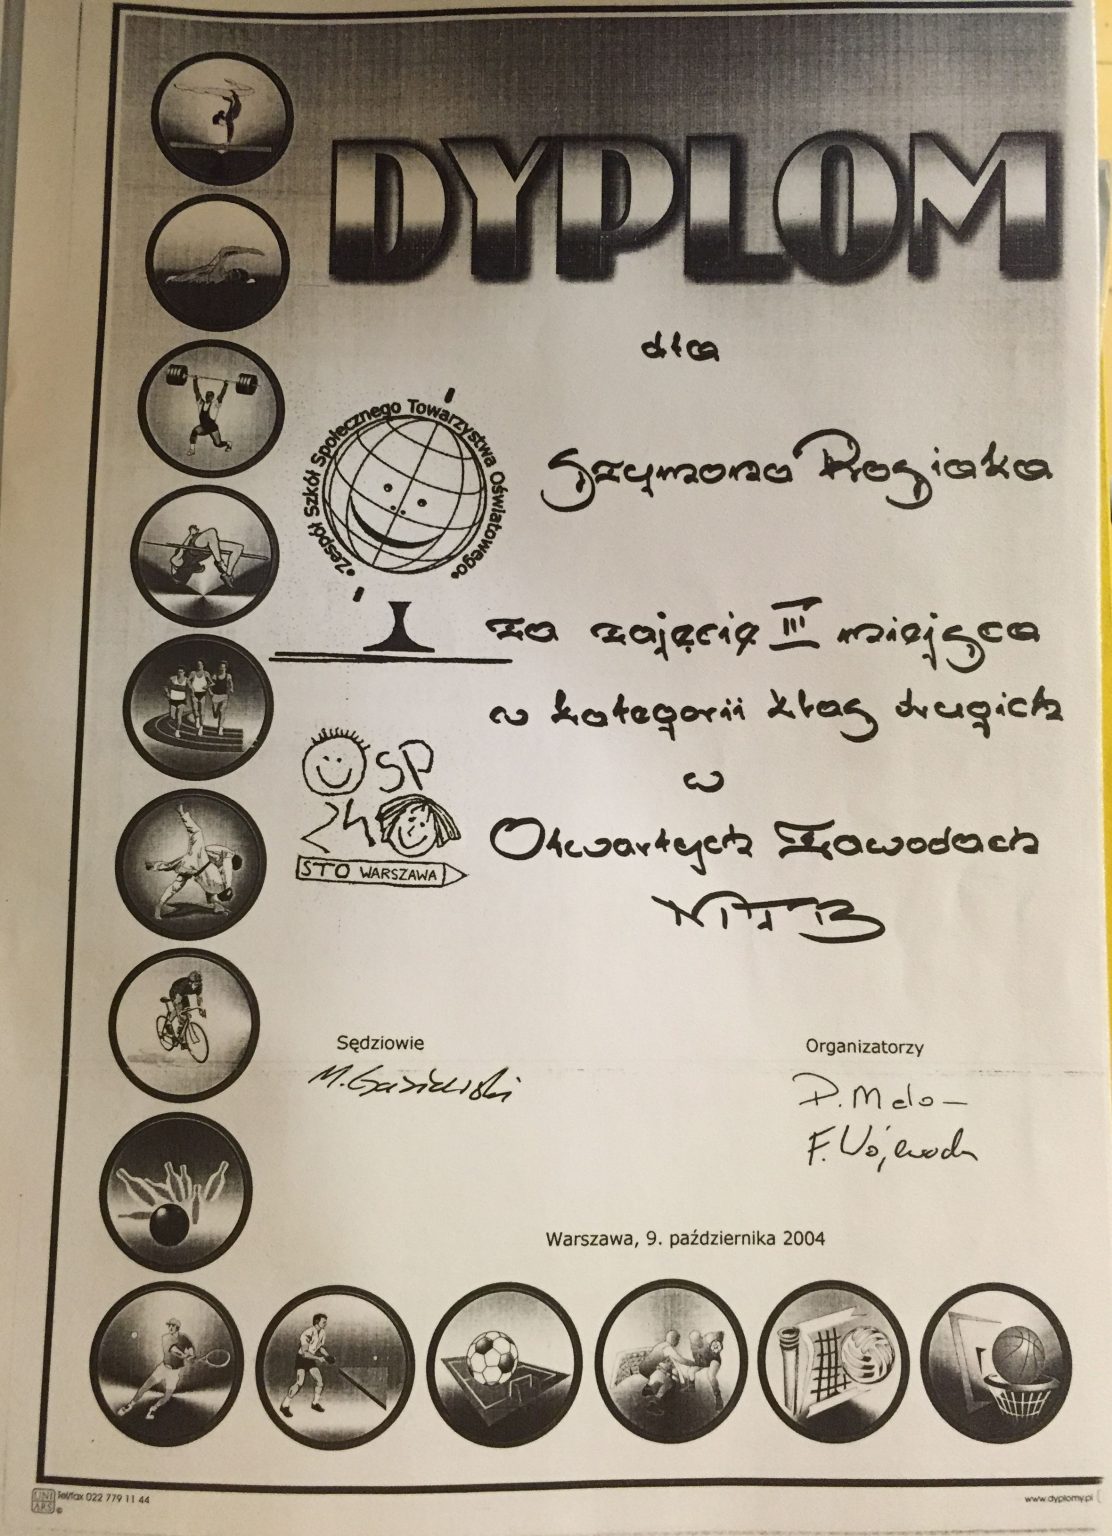 DYPLOM
dla
•Zespół Szkół Społecznego Towarzystwa Oświatowego•
Szymona Rogiaka
za zajęcie III miejsca
w kategorii klas drugich
w
OSP
240
STO WARSZAWA
Otwartych Zawodach
Sędziowie
Organizatorzy
Warszawa, 9. października 2004
UNI
ARS
Tel/fax 022 779 11 44
www.dyplomy.pl